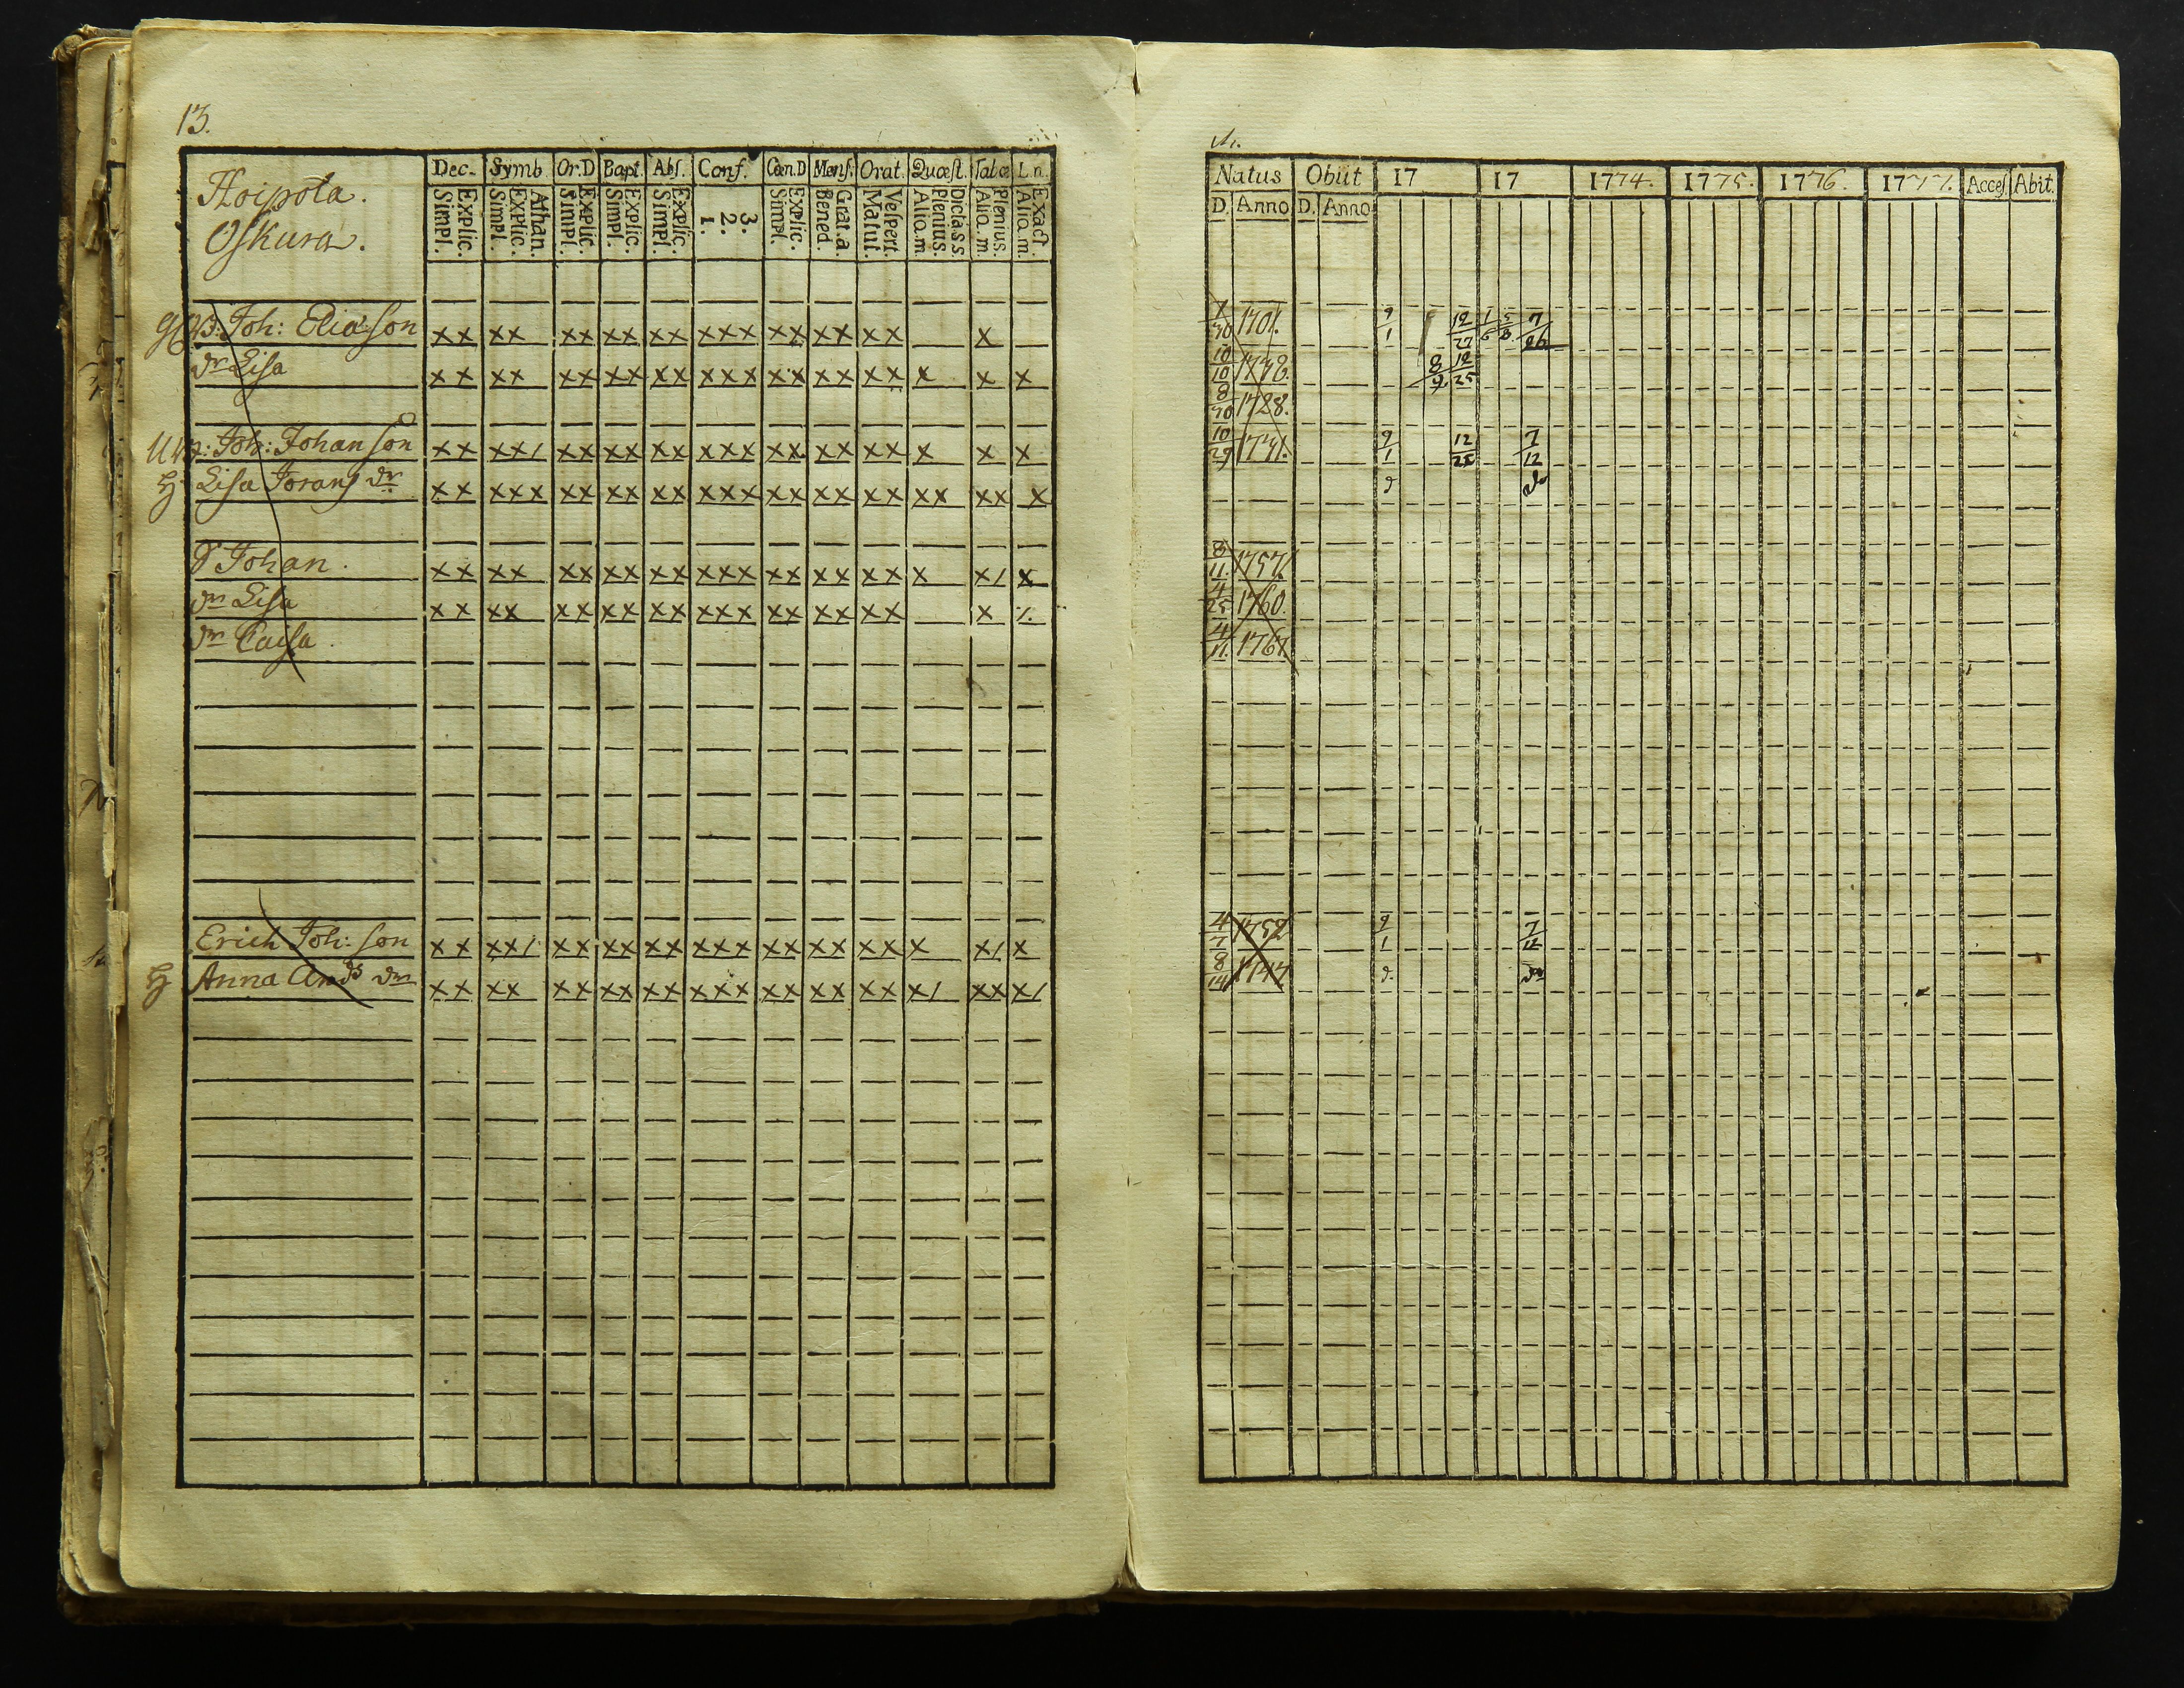 13.
Dec. Symb Or.D Bapt. Abs. Conf. Cœn.D Mens. Orat. Quæst. Tabœ L.n.
Simpl. Explic. Simpl. Explic. Athan. Simpl. Explic. Simpl. Explic. Simpl. Explic. 1. 2. 3. Simpl. Explic. Bened. Grat.a. Matut. Vespert. Aliq.m Plenius. Dict.a.s.s. Aliq.m. Plenius. Aliq.m. Exact.
Hoipola.
Oskura.
Joh: Eliæson xx xx xx xx xx xxx xx xx xx x
dr Lisa xx xx xx xx xx xxx xx xx xx x x x
Joh: Johanson xx xx/ xx xx xx xxx xx xx xx x x x
H Lisa Jorans dr xx xxx xx xx xx xxx xx xx xx xx xx x
S Johan. xx xx xx xx xx xxx xx xx xx x x/ x
dr Lisa xx xx xx xx xx xxx xx xx xx x
dr Caisa.
Erich Joh: son xx xx/ xx xx xx xxx xx xx xx x x/ x
H Anna And: dr xx xx xx xx xx xxx xx xx xx x/ xx x/
Natus Obiit 17 17 1774. 1775. 1776. 1777. Acces. Abit.
D. Anno D. Anno
1701. 9/1 12/27 1/6 5/8 7/26
10/10 8/9 12/25
8/ 1728.
10/29 1741. 9/1 12/ 7/12
8/11. 1757.
4/25 1760.
4/11. 1767.
4/7 1752 9/1 7/12
8/14 1747